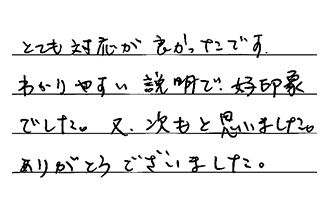 とても対応が良かったです.
わかりやすい説明で.好印象
でした。又、次もと思いました。
ありがとうございました。